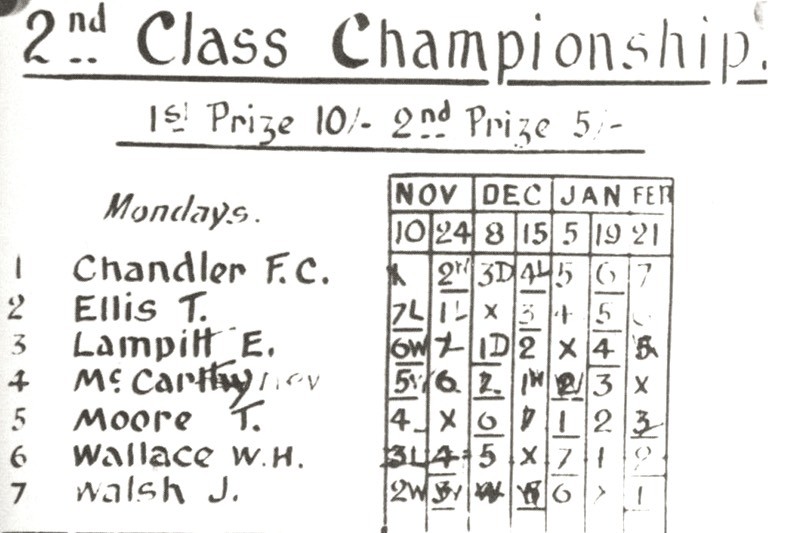 2nd Class Championship.
1st Prize 10/- 2nd Prize 5/-
NOV DEC JAN FEB
Mondays. 10 24 8 15 5 19 21
1 Chandler F.C. 2W 3D 4L 5 6 7
2 Ellis T. 7L 1L x 3 4 5
3 Lampitt E. 6W 1D 2 x 4
4 McCarthy 6 2 1W 3 x
5 Moore T. 4 x 6 1 2 3
6 Wallace W.H. 3L 4 5 x 7 1 2
7 Walsh J. 2W 6 1